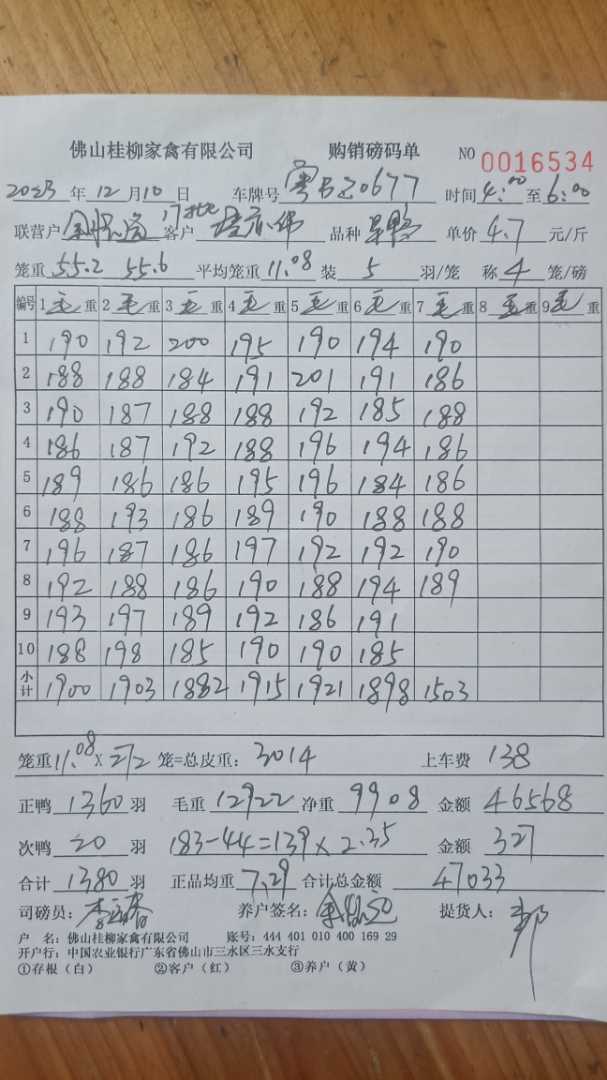 佛山桂柳家禽有限公司 购销磅码单 NO 0016534
2023 年 12 月 10 日 车牌号 粤 Z0677 时间 4:00 至 6:00
联营户 客户 17批 品种 单价 4.7 元/斤
笼重 55.2 55.6 平均笼重 11.08 装 5 羽/笼 称 4 笼/磅
编号 1 毛重 2 毛重 3 毛重 4 毛重 5 毛重 6 毛重 7 毛重 8 毛重 9 毛重
1 190 192 200 195 190 194 190
2 188 188 184 191 201 191 186
3 190 187 188 188 192 185 188
4 186 187 192 188 196 194 186
5 189 186 186 195 196 184 186
6 188 193 186 189 190 188 188
7 196 187 186 197 192 192 190
8 192 188 186 190 188 194 189
9 193 197 189 192 186 191
10 188 198 185 190 190 185
小计 1900 1903 1882 1915 1921 1898 1503
笼重 11.08 × 272 笼=总皮重: 3014 上车费 138
正鸭 1360 羽 毛重 12922 净重 9908 金额 46568
次鸭 20 羽 183-44=139×2.35 金额 327
合计 1380 羽 正品均重 7.29 合计总金额 47033
司磅员: 养户签名: 提货人: 郭
户 名: 佛山桂柳家禽有限公司 账号: 444 401 010 400 169 29
开户行: 中国农业银行广东省佛山市三水区三水支行
①存根（白） ②客户（红） ③养户（黄）